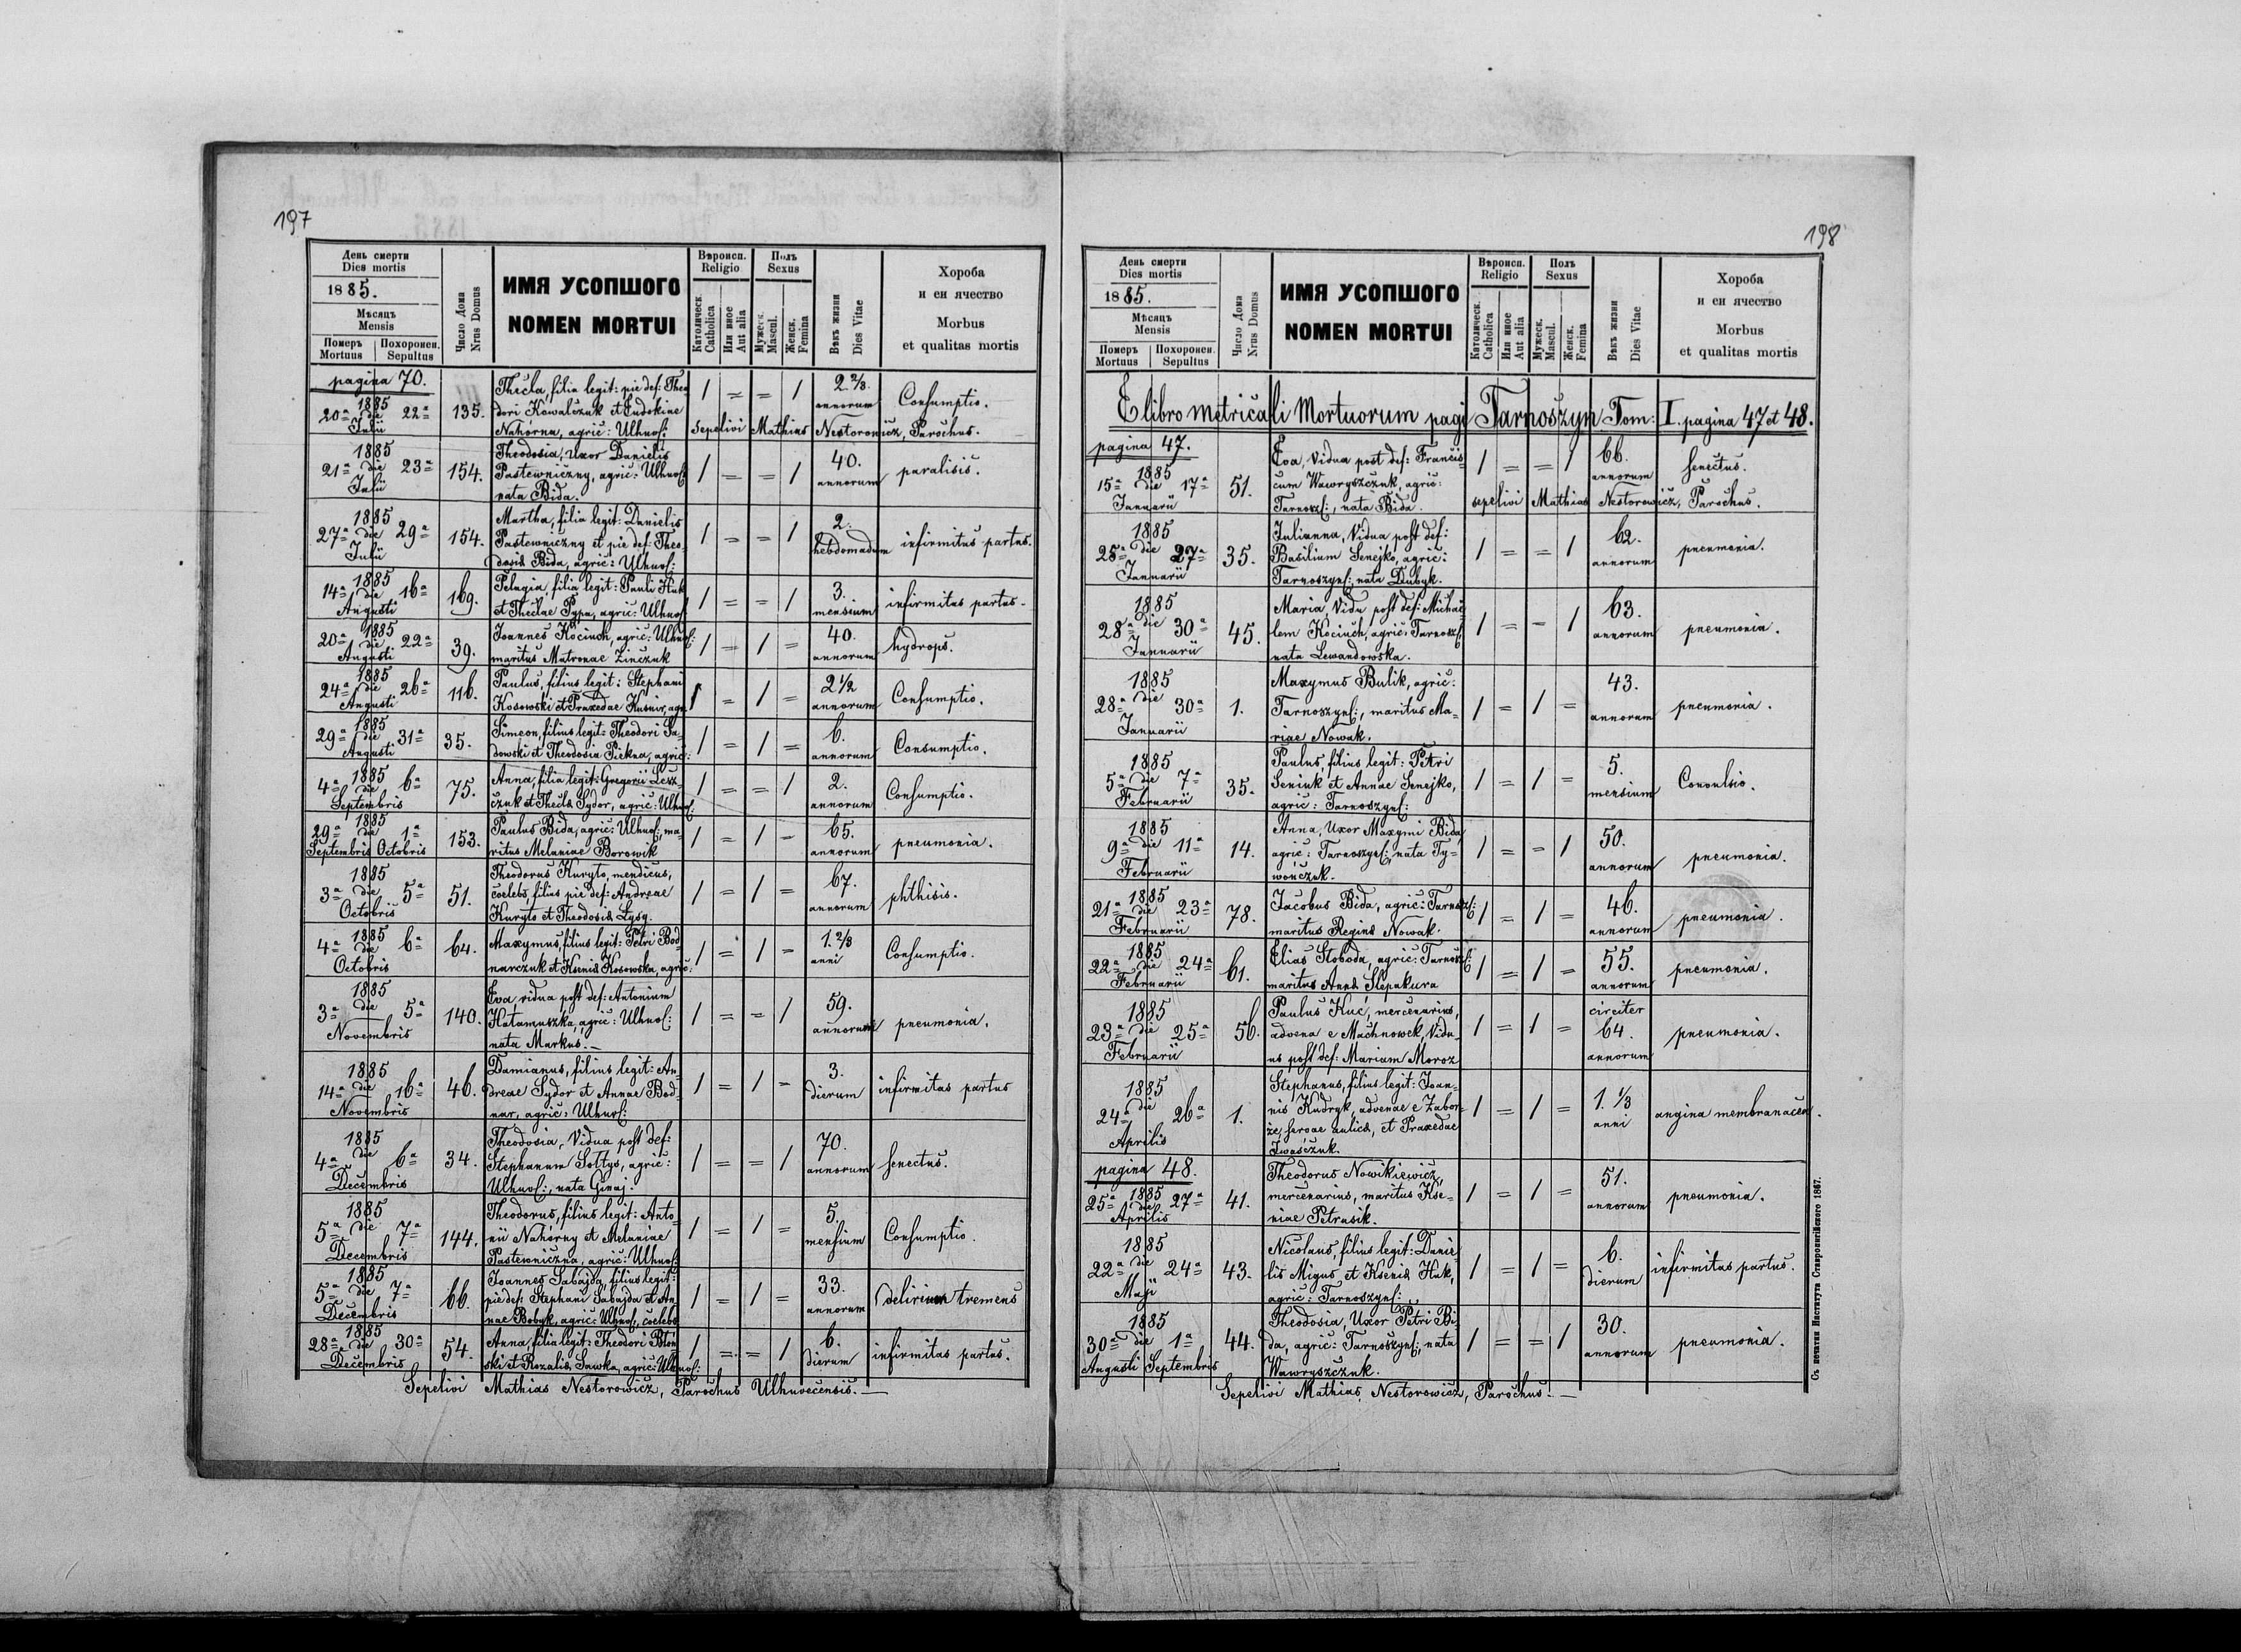 197
День смерти
Dies mortis
1885.
Мѣсяцъ
Mensis
Померъ
Mortuus
Похоронен.
Sepultus
Число Дома
Nrus Domus
ИМЯ УСОПШОГО
NOMEN MORTUI
Вѣроисп.
Religio
Католическ.
Catholica
Или иное
Aut alia
Полъ
Sexus
Мужеск.
Mascul.
Женск.
Femina
Вѣкъ жизни
Dies Vitae
Хороба
и еи ячество
Morbus
et qualitas mortis
pagina 70.
1885
20a die 22a
Julii
135.
Thecla, filia legit: pie def: Theo
dori Kowalczuk et Eudokiae
Nahórna, agric: Ulhuos:
1 = = 1
2 2/3.
annorum
Consumptio.
Sepelivi Mathias Nestorowicz, Parochus.
1885
21a die 23a
Julii
154.
Theodosia, Uxor Danielis
Pastewniczny, agric: Ulhuos:
nata Bida.
1 = = 1
40.
annorum
paralisis.
1885
27a die 29a
Julii
154.
Martha, filia legit: Danielis
Pastewniczny et pie def: Theo-
dosia Bida, agric: Ulhuos:
1 = = 1
2.
hebdomadum
infirmitas partus.
1885
14a die 16a
Augusti
169.
Pelagia, filia legit: Pauli Huk
et Theclae Pypa, agric: Ulhuos:
1 = = 1
3.
mensium
infirmitas partus.
1885
20a die 22a
Augusti
39.
Joannes Kociuch, agric: Ulhuos:
maritus Matronae Zińczuk
1 = 1 =
40.
annorum
hydrops.
1885
24a die 26a
Augusti
116.
Paulus, filius legit: Stephani
Kosowski et Praxedae Kusnir, agr.
1 = 1 =
2 1/2
annorum
Consumptio.
1885
29a die 31a
Augusti
35.
Simeon, filius legit: Theodori Sa-
dowski et Theodosia Piekna, agric:
1 = 1 =
6.
annorum
Consumptio.
1885
4a die 6a
Septembris
75.
Anna, filia legit: Gregorii Lesz-
czuk et Thecla Sydor, agric: Ulhuos:
1 = = 1
2.
annorum
Consumptio.
1885
29a die 1a
Septembris Octobris
153.
Paulus Bida, agric: Ulhuos:, ma
ritus Melaniae Borowik
1 = 1 =
65.
annorum
pneumonia.
1885
3a die 5a
Octobris
51.
Theodorus Kuryło, mendicus,
coelebs, filius pie def: Andreae
Kuryło et Theodosia Łysy.
1 = 1 =
67.
annorum
phthisis.
1885
4a die 6a
Octobris
64.
Maxymus, filius legit: Petri Bod-
narczuk et Ksenia Kosowska, agric:
1 = 1 =
1.2/3
anni
Consumptio.
1885
3a die 5a
Novembris
140.
Eva vidua post def: Antonium
Hałamuszka, agric: Ulhuos:
nata Markus.
1 = = 1
59.
annorum
pneumonia.
1885
14a die 16a
Novembris
46.
Damianus, filius legit: An-
dreae Sydor et Annae Bod-
nar, agric: Ulhuos:
1 = 1 =
3.
dierum
infirmitas partus
1885
4a die 6a
Decembris
34.
Theodosia, Vidua post def:
Stephanum Sołtys, agric:
Ulhuos:, nata Ginaj.
1 = = 1
70.
annorum
senectus.
1885
5a die 7a
Decembris
144.
Theodorus, filius legit: Anto-
nii Nahórny et Melaniae
Pastewniczna, agric: Ulhuos:
1 = 1 =
5.
mensium
Consumptio.
1885
5a die 7a
Decembris
66.
Joannes Sabajda, filius legit:
pie def: Stephani Sabajda et An
nae Bobyk, agric: Ulhuos:, coelebs
1 = 1 =
33.
annorum
delirium tremens
1885
28a die 30a
Decembris
54.
Anna, filia legit: Theodori Błoń-
ski et Rozalia Sawka, agric: Ulhuos:
1 = = 1
6.
dierum
infirmitas partus.
Sepelivi Mathias Nestorowicz, Parochus Ulhuvecensis.
198
День смерти
Dies mortis
1885.
Мѣсяцъ
Mensis
Померъ
Mortuus
Похоронен.
Sepultus
Число Дома
Nrus Domus
ИМЯ УСОПШОГО
NOMEN MORTUI
Вѣроисп.
Religio
Католическ.
Catholica
Или иное
Aut alia
Полъ
Sexus
Мужеск.
Mascul.
Женск.
Femina
Вѣкъ жизни
Dies Vitae
Хороба
и еи ячество
Morbus
et qualitas mortis
E libro metricali Mortuorum pagi Tarnoszyn Tom: I. pagina 47 et 48.
pagina 47.
1885
15a die 17a
Januarii
51.
Eva, Vidua post def: Francis-
cum Wawryszczuk, agric:
Tarnosz:, nata Bida.
1 = = 1
66.
annorum
senectus.
sepelivi Mathias Nestorowicz, Parochus.
1885
25a die 27a
Januarii
35.
Julianna, Vidua post def:
Basilium Senejko, agric:
Tarnoszyns: nata Dubyk.
1 = = 1
62.
annorum
pneumonia.
1885
28a die 30a
Januarii
45.
Maria, Vidu post def: Michaë
lem Kociuch, agric: Tarnosz:
nata Lewandowska.
1 = = 1
63.
annorum
pneumonia.
1885
28a die 30a
Januarii
1.
Maxymus Bulik, agric:
Tarnoszyns:, maritus Ma-
riae Nowak.
1 = 1 =
43.
annorum
pneumonia.
1885
5a die 7a
Februarii
35.
Paulus, filius legit: Petri
Seniuk et Annae Senejko,
agric: Tarnoszyns:
1 = 1 =
5.
mensium
Convulsio.
1885
9a die 11a
Februarii
14.
Anna, Uxor Maxymi Bida
agric: Tarnoszyns: nata Ty-
wończuk.
1 = = 1
50.
annorum
pneumonia.
1885
21a die 23a
Februarii
78.
Jacobus Bida, agric: Tarnosz:
maritus Regina Nowak.
1 = 1 =
46.
annorum
pneumonia.
1885
22a die 24a
Februarii
61.
Elias Słoboda, agric: Tarnosz:
maritus Anna Slepakura
1 = 1 =
55.
annorum
pneumonia.
1885
23a die 25a
Februarii
56.
Paulus Kuć, mercenarius,
advena e Machnowek, Vidu-
us post def: Mariam Moroz
1 = 1 =
circiter
64.
annorum
pneumonia.
1885
24a die 26a
Aprilis
1.
Stephanus, filius legit: Joan-
nis Kudryk, advenae e Zabor-
że, servae aulica, et Praxedae
Iwaśczuk.
1 = 1 =
1. 1/3
anni
angina membranacea.
pagina 48.
1885
25a die 27a
Aprilis
41.
Theodorus Nowikiewicz,
mercenarius, maritus Kse-
niae Petrusik.
1 = 1 =
51.
annorum
pneumonia.
1885
22a die 24a
Maji
43.
Nicolaus, filius legit: Danie
lis Migus et Ksenia Huk,
agric: Tarnoszyns:
1 = 1 =
6.
dierum
infirmitas partus.
1885
30a die 1a
Augusti Septembris
44.
Theodosia, Uxor Petri Bi-
da, agric: Tarnoszyns:, nata
Wawryszczuk.
1 = = 1
30.
annorum
pneumonia.
Sepelivi Mathias Nestorowicz, Parochus.
Съ печатни Института Ставропигійского 1867.